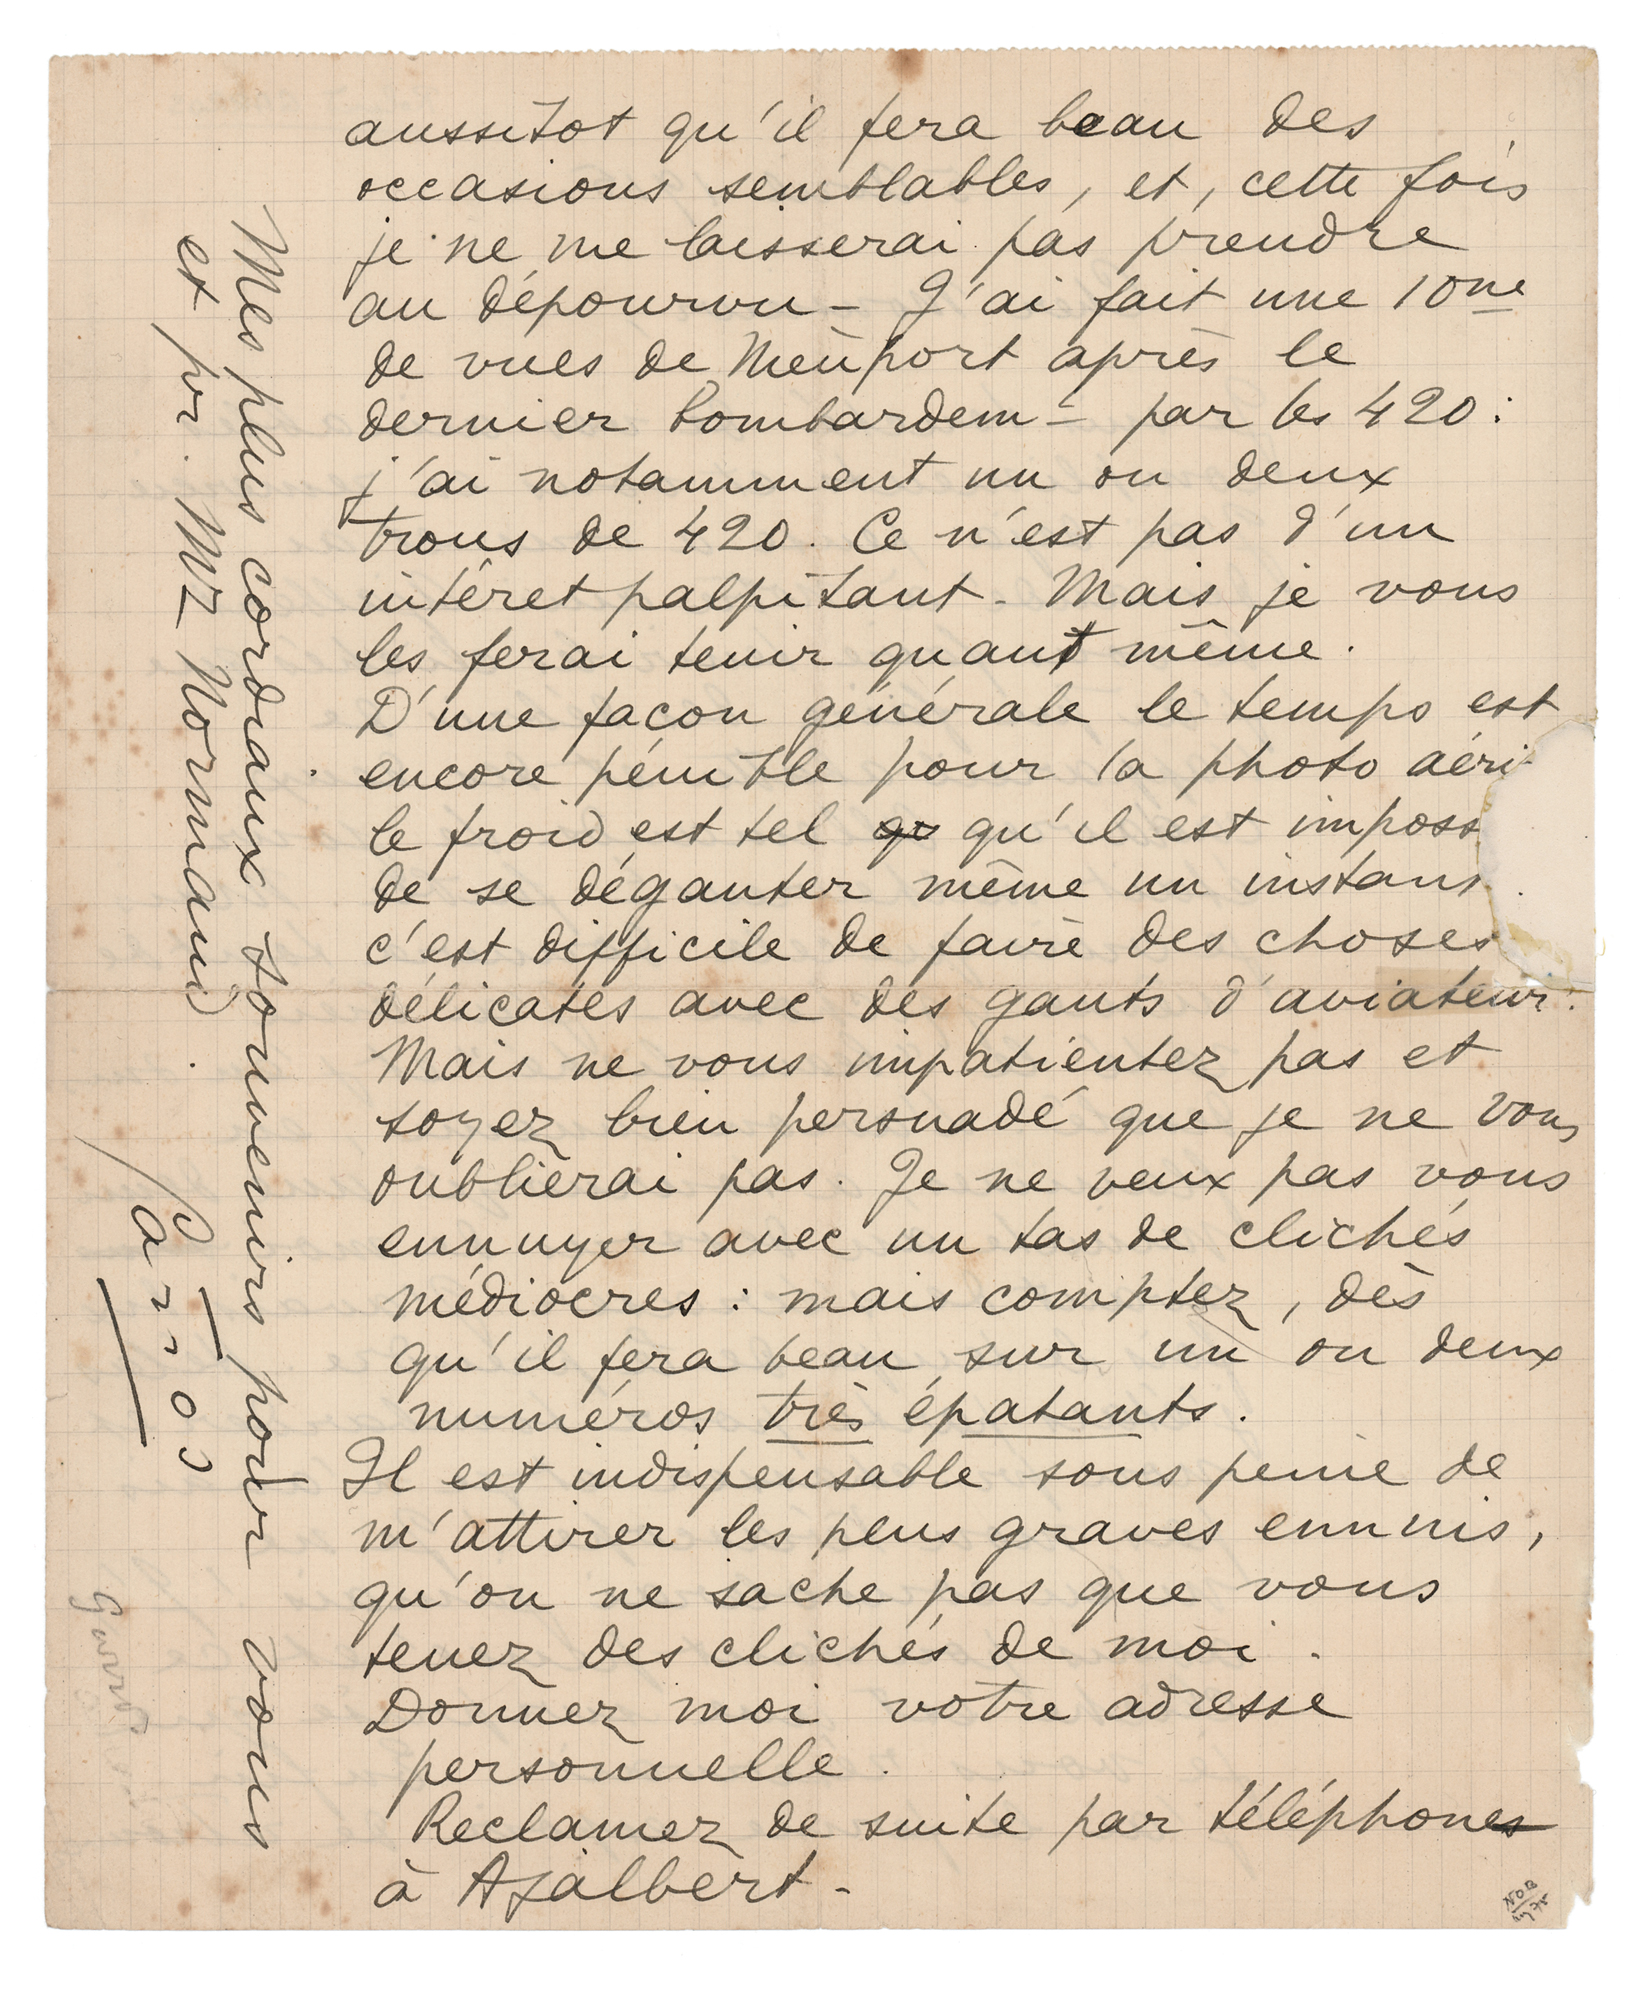 aussitot qu'il fera beau des
occasions semblables, et, cette fois
je ne me laisserai pas prendre
au dépourvu – J'ai fait une 10ne
de vues de Nieuport après le
dernier bombardemt par les 420:
j'ai notamment un ou deux
trous de 420. Ce n'est pas d'un
intéret palpitant. Mais je vous
les ferai tenir quant même.
D'une façon générale le temps est
encore pénible pour la photo aéri
le froid est tel qu'il est imposs
de se déganter même un instant
c'est difficile de faire des choses
délicates avec des gants d'aviateur.
Mais ne vous impatientez pas et
soyez bien persuadé que je ne vous
oublierai pas. Je ne veux pas vous
ennuyer avec un tas de clichés
médiocres : mais comptez, dès
qu'il fera beau, sur un ou deux
numéros très épatants.
Il est indispensable sous peine de
m'attirer les plus graves ennuis,
qu'on ne sache pas que vous
tenez des clichés de moi.
Donnez moi votre adresse
personnelle.
Reclamez de suite par téléphone
à Ajalbert.
Mes plus cordiaux souvenirs pour vous
et pr. Mr Normand.
Garros